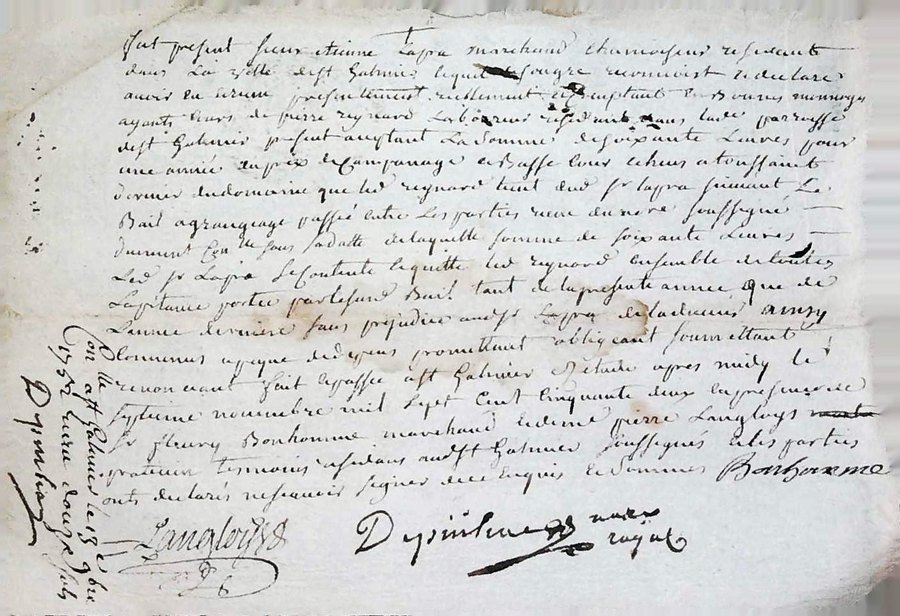 fut present sieur etienne Lapra marchand chamoiseur residant
dans La ville de st Galmier lequel de son gre reconnoist et declare
avoir eu et receu presentement reellement et comptant en Bonnes monnoyes
ayants Cours de pierre reynard Laboureur residant dans lade parroisse
de st Galmier present aceptant La somme de soixante Livres pour
une année du prix de Campanage et Basse Cour echeus a toussaint
dernier du domaine que led reynard tient dud sr lapra suivant Le
Bail a grangeage passé entre Les parties receu du nore soussigné
duement Con lle sous sa datte de laquelle somme de soixante Livres
Led sr Lapra se Contente et quitte led reynard ensemble de toutes
La pitance portée par le susd Bail tant de la presente année que de
Lannée derniere sans prejudice aud sr Lapra de ainsy
Convenus a peine de depens promettant obligeant soumettant
renonceant fait et passé a st Galmier Estude apres midy le
septieme novembre mil sept Cent Cinquante deux en presence de
sr fleury Bonhomme marchand et de me pierre Langloys
praticien tesmoins residans aud st Galmier soussignés et les parties
ont declarés ne sçavoir signer de ce Enquis et sommés Bonhomme
Langloys
Depinhac nore
royal
Con lle a st Galmier le 18 e 9bre
1752 receu douze sols
Depinhac